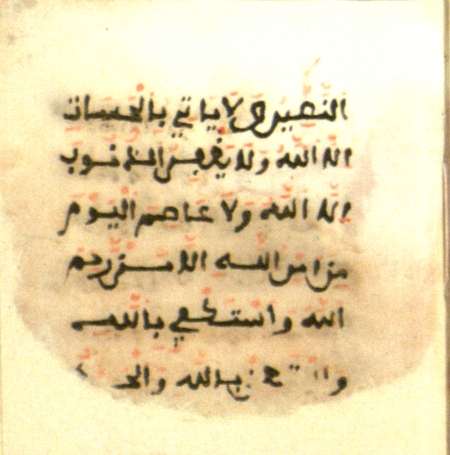 النصير ولا ياتي بالحسنات
الا الله ولا يغفر الذنوب
الا الله ولا عاصم اليوم
من امر الله الا من رحم
الله واستكفي بالله
بالله